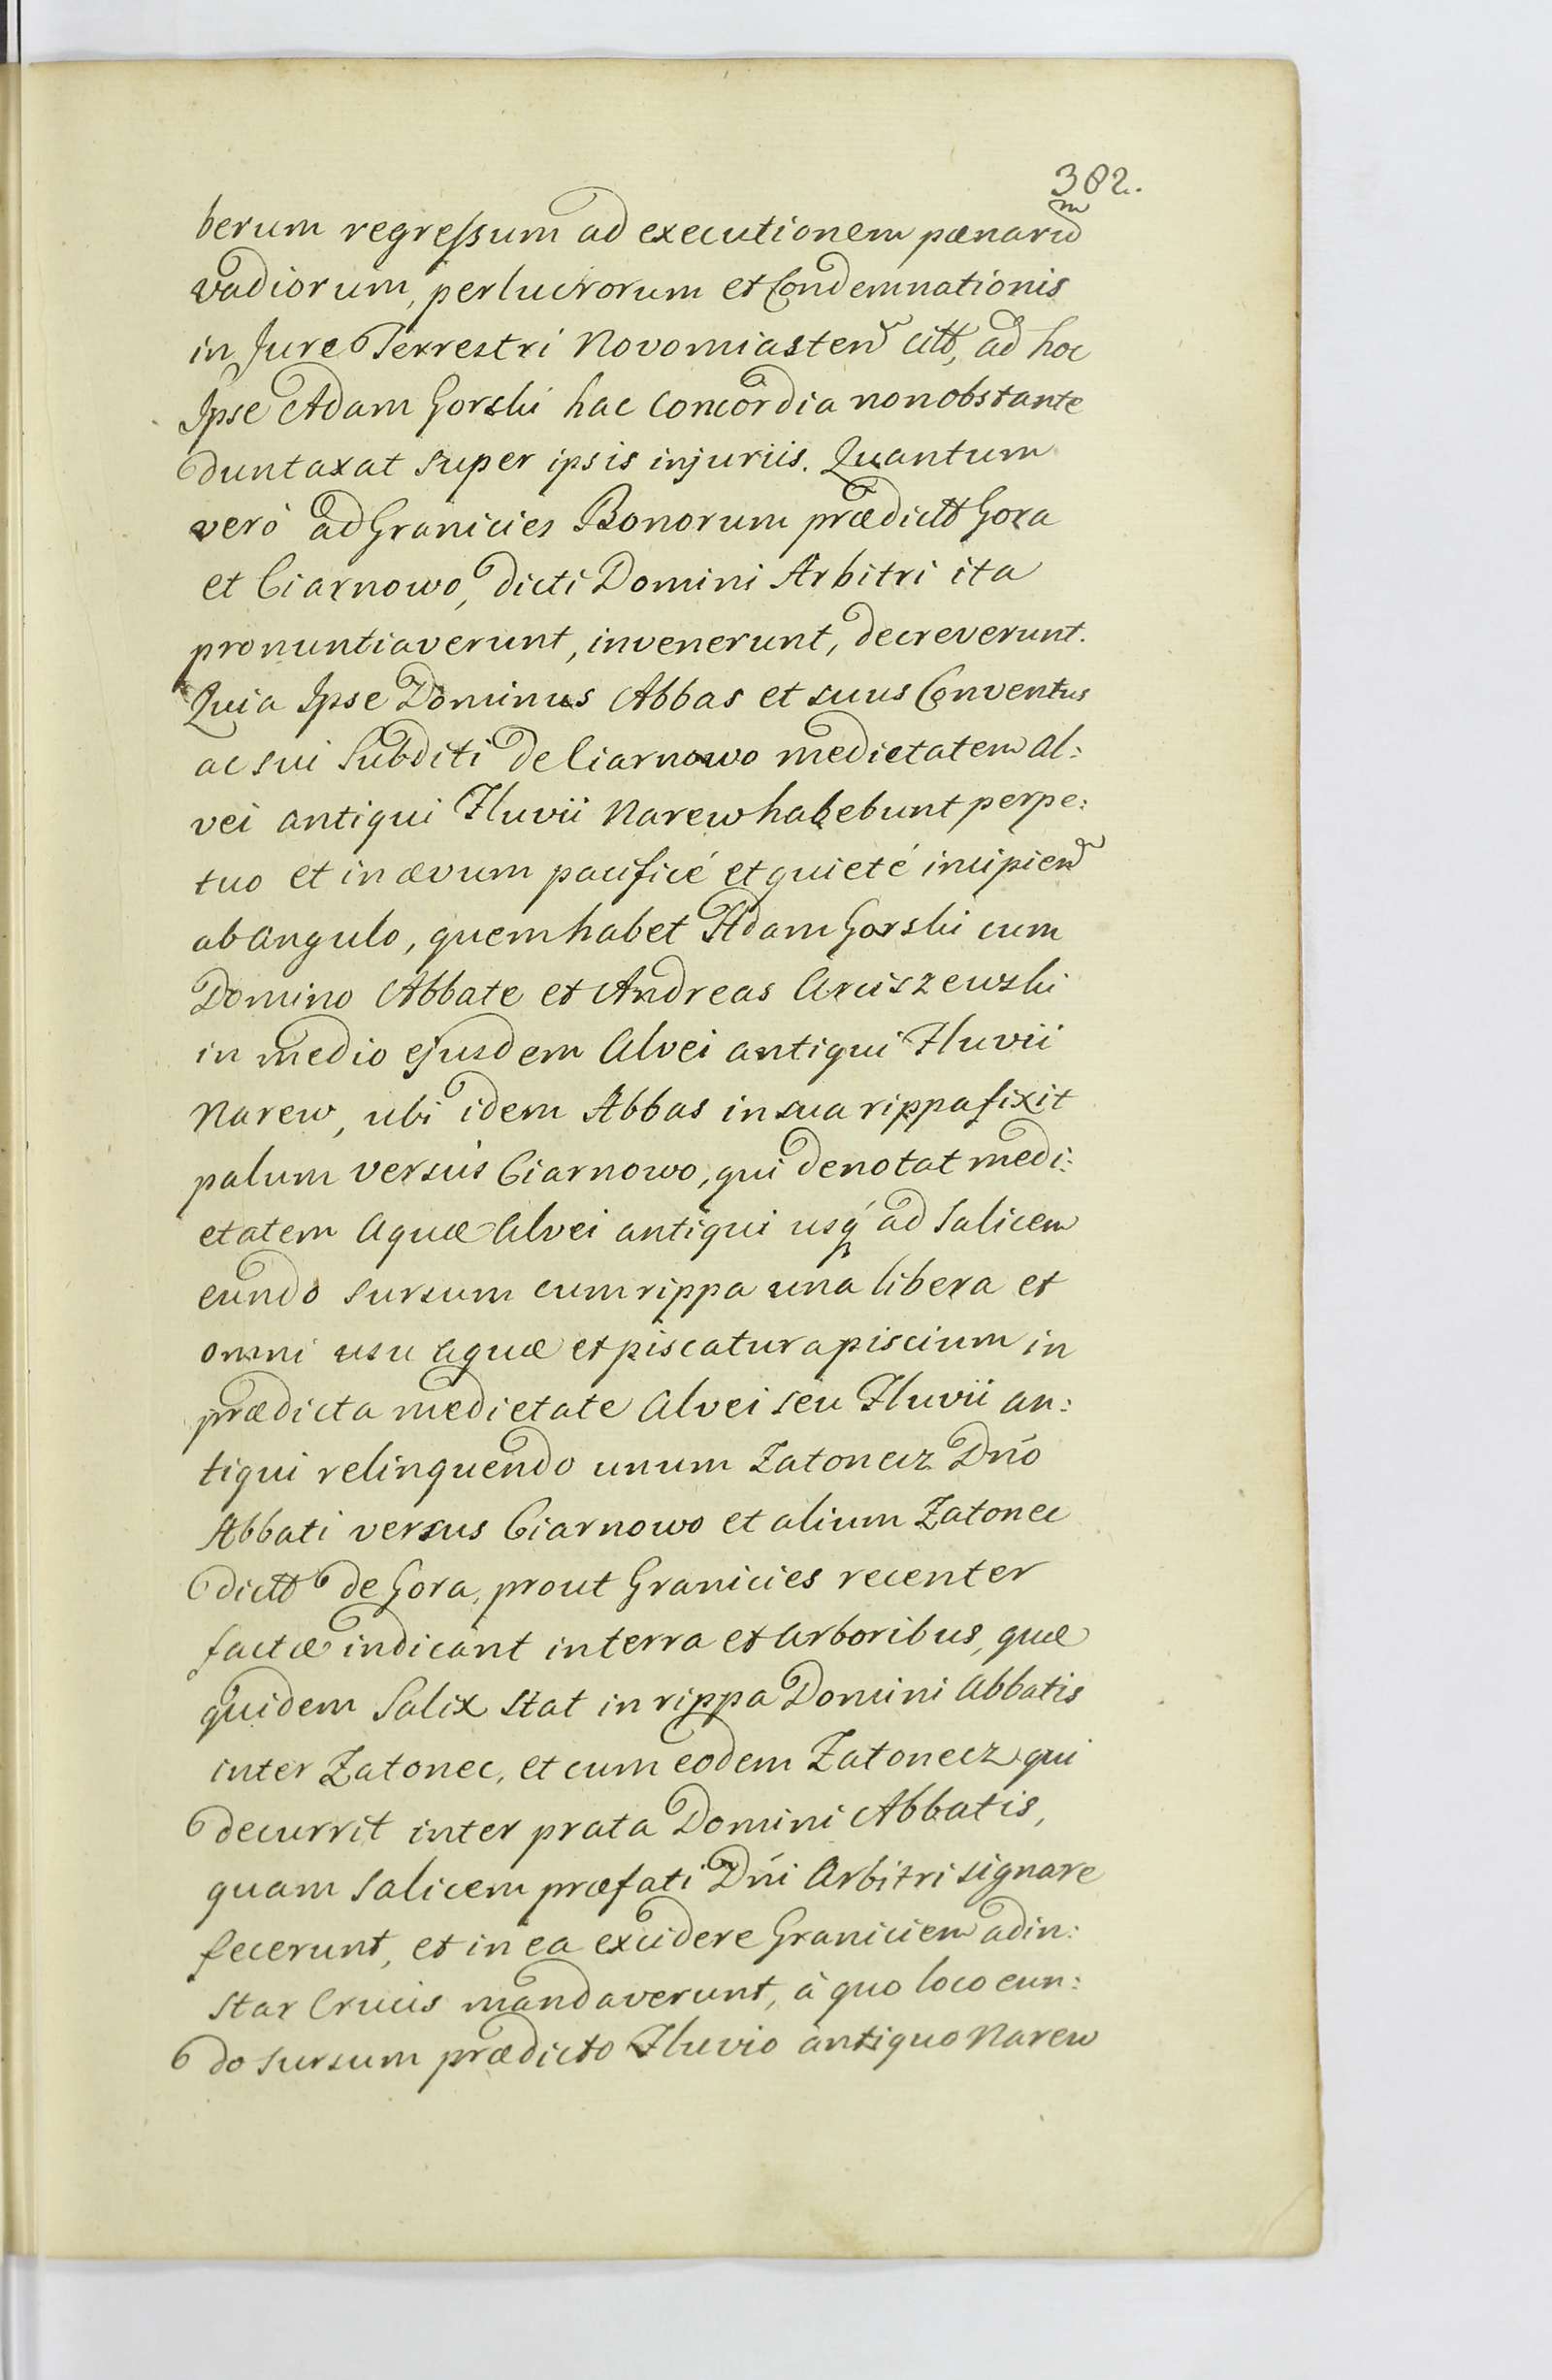 382.
berum regressum ad executionem pœnarum
vadiorum, perlucrorum et Condemnationis
in Jure Terrestri Novomiasten citt, ad hoc
Ipse Adam Gorski hac Concordia nonobstante
duntaxat super ipsis injuriis. Quantum
verò ad Granicies Bonorum prædictt Gora
et Ciarnowo, dicti Domini Arbitri ita
pronuntiaverunt, invenerunt, decreverunt.
Quia Ipse Dominus Abbas et suus Conventus
ac sui Subditi de Ciarnowo medietatem al:
vei antiqui Fluvii Narew habebunt perpe:
tuo et in ævum pacificé et quieté incipien
ab angulo, quem habet Adam Gorski cum
Domino Abbate et Andreas Arciszewski
in medio ejusdem Alvei antiqui Fluvii
Narew, ubi idem Abbas in sua rippa fixit
palum versus Ciarnowo, qui denotat medi:
etatem Aquæ Alvei antiqui usq ad Salicem
eundo sursum cum rippa una libera et
omni usu aquæ et piscatura piscium in
prædicta medietate Alvei seu Fluvii an:
tiqui relinquendo unum Zatonecz Dno
Abbati versus Ciarnowo et alium Zatonec
dictt de Gora, prout Granicies recenter
factæ indicant in terra et Arboribus, quæ
quidem Salix stat in rippa Domini Abbatis
inter Zatonec, et cum eodem Zatonecz qui
decurrit inter prata Domini Abbatis,
quam Salicem præfati Dni Arbitri signare
fecerunt, et in ea excidere Graniciem adin:
star Crucis mandaverunt, à quo loco eun:
do sursum prædicto Fluvio antiquo Narew